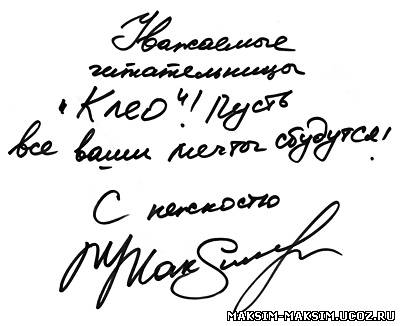 Уважаемые
читательницы
"Клео"! Пусть
все ваши мечты сбудутся!
С нежностью
Maksim
MAKSIM-MAKSIM.UCOZ.RU